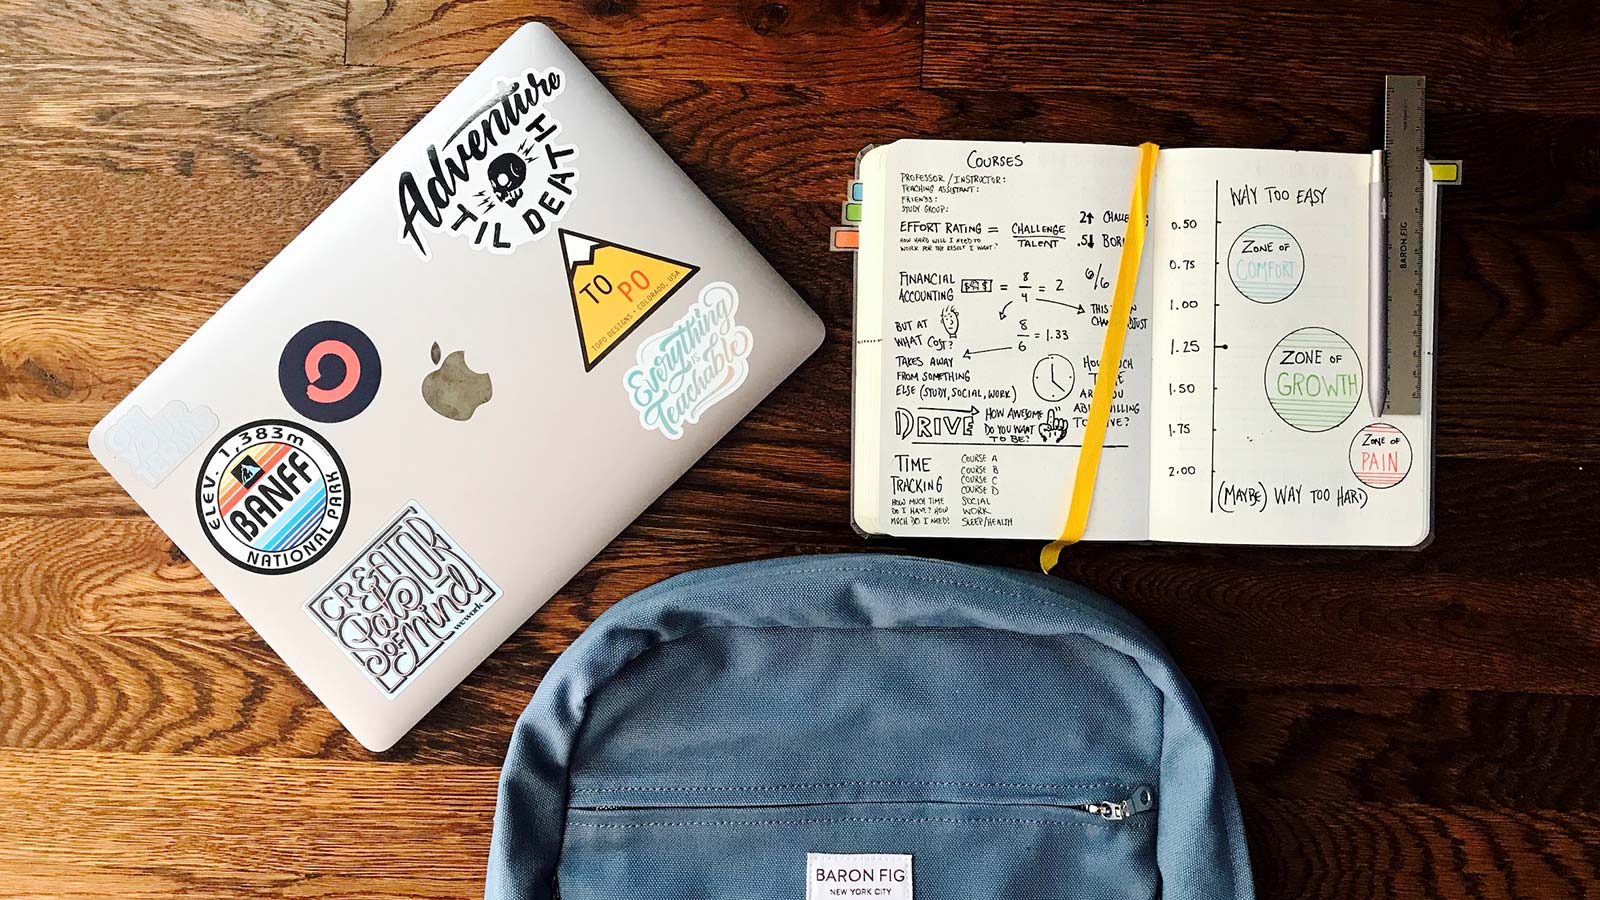 Adventure
TIL DEATH
TO
PO
TOPO DESIGNS • COLORADO, USA
Everything
is
Teachable
ELEV. 1,383m
BANFF
NATIONAL PARK
CREATOR
State
OF
Mind
wework
COURSES
PROFESSOR / INSTRUCTOR:
TEACHING ASSISTANT:
FRIENDS:
STUDY GROUP:
EFFORT RATING = CHALLENGE
TALENT
HOW HARD WILL I NEED TO
WORK FOR THE RESULT I WANT?
2↑
.5↓
FINANCIAL
ACCOUNTING
$$$ = 8/4 = 2
6/6
BUT AT
WHAT COST?
8/6 = 1.33
TAKES AWAY
FROM SOMETHING
ELSE (STUDY, SOCIAL, WORK)
DRIVE
HOW AWESOME
DO YOU WANT
TO BE?
TIME
TRACKING
HOW MUCH TIME
DO I HAVE? HOW
MUCH DO I NEED?
COURSE A
COURSE B
COURSE C
COURSE D
SOCIAL
WORK
SLEEP/HEALTH
WAY TOO EASY
0.50
0.75
1.00
1.25
1.50
1.75
2.00
ZONE OF
COMFORT
ZONE OF
GROWTH
ZONE OF
PAIN
(MAYBE) WAY TOO HARD
BARON FIG
BARON FIG
NEW YORK CITY